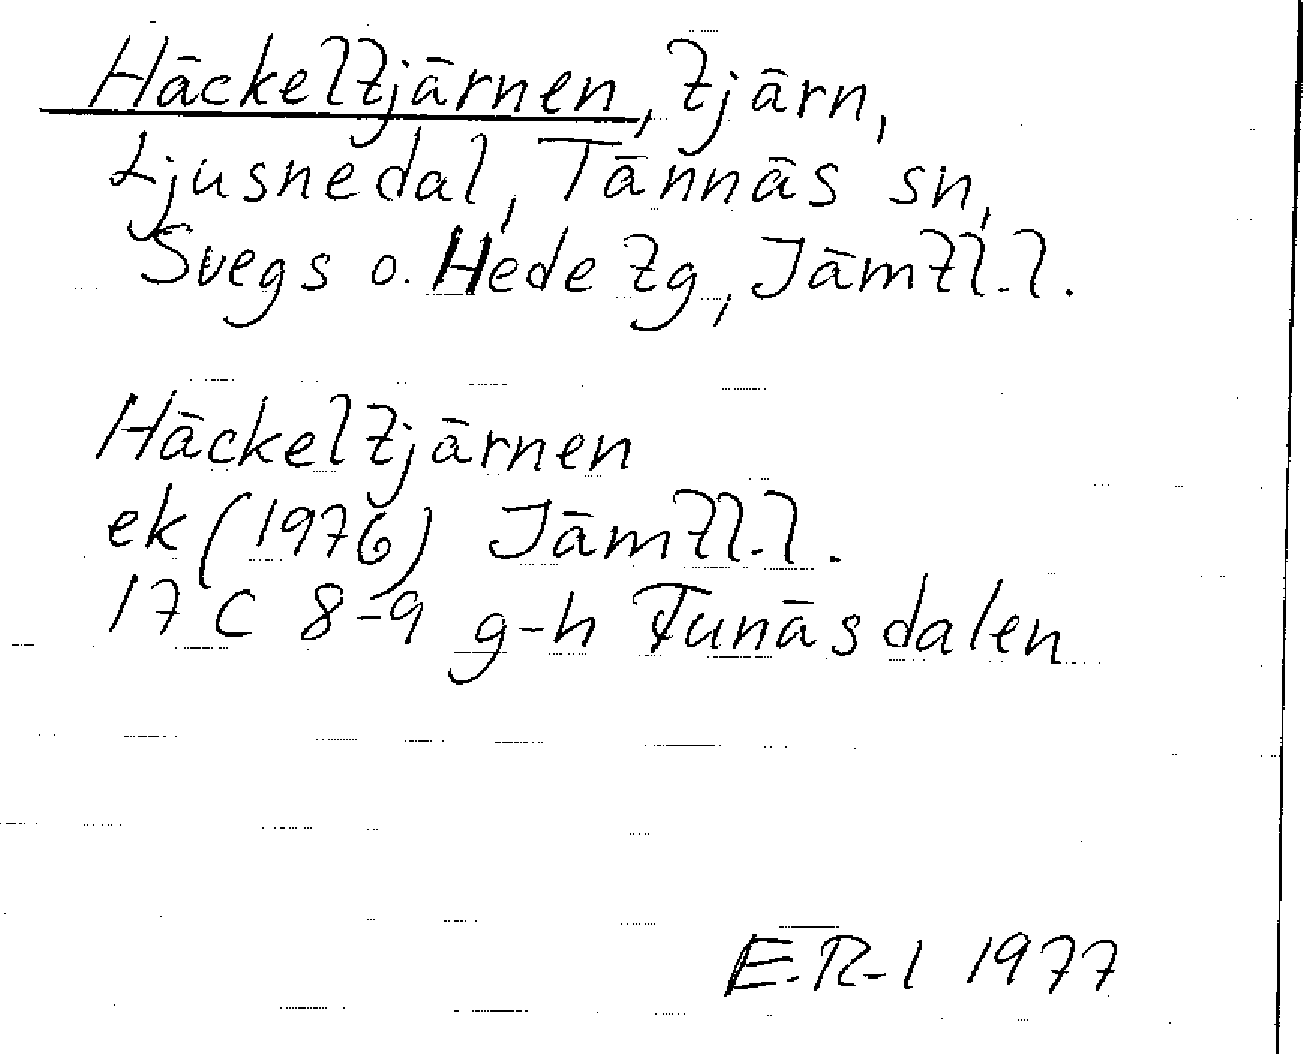 Häckeltjärnen, tjärn,
Ljusnedal, Tännäs sn,
Svegs o. Hede tg, Jämtl.l.
Häckeltjärnen
ek (1976) Jämtl.l.
17 C 8-9 g-h Funäsdalen
E.R-l 1977